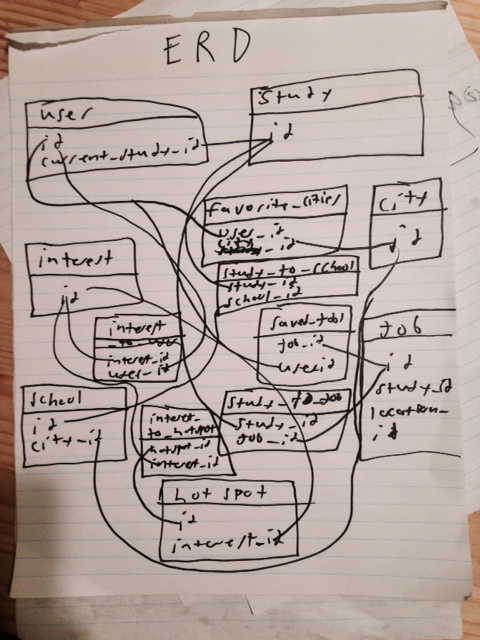 ERD
user
id
current_study_id
study
id
favorite_cities
user_id
city_id
city
id
interest
id
study_to_school
study_id
school_id
interest
to user
interest_id
user_id
saved_job
job_id
userid
Job
id
study_id
location_
id
school
id
city_id
interest_
to_hotspot
hotspot_id
interest_id
study_to_job
study_id
job_id
hot spot
id
interest_id